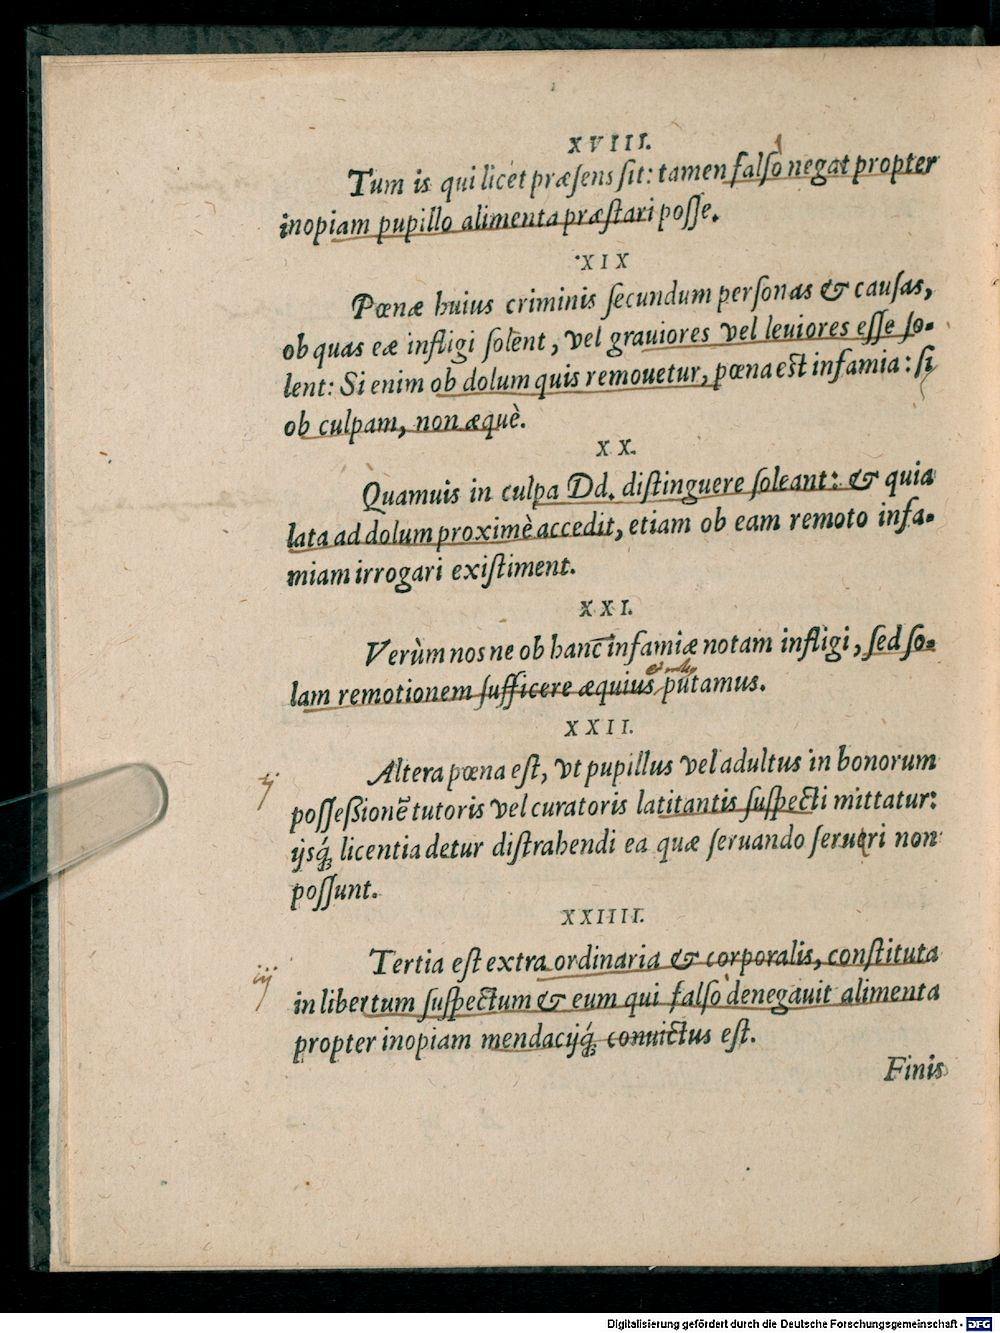 XVIII.
Tum is qui licet præſens ſit: tamen falſò negat propter
inopiam pupillo alimenta præſtari poſſe.
XIX
Pœnæ huius criminis ſecundum perſonas & cauſas,
ob quas eæ infligi ſolent, vel grauiores vel leuiores eſſe ſo-
lent: Si enim ob dolum quis remouetur, pœna est infamia: ſi
ob culpam, non æquè.
XX.
Quamuis in culpa Dd. diſtinguere ſoleant: & quia
lata ad dolum proximè accedit, etiam ob eam remoto infa-
miam irrogari exiſtiment.
XXI.
Verùm nos ne ob hanc infamiæ notam infligi, ſed ſo-
lam remotionem ſufficere æquius putamus.
XXII.
ij
Altera pœna eſt, vt pupillus vel adultus in bonorum
poſſeßionē tutoris vel curatoris latitantis ſuſpecti mittatur:
ijsq́; licentia detur diſtrahendi ea quæ ſeruando ſeruari non
poſſunt.
XXIIII.
iij
Tertia eſt extra ordinaria & corporalis, conſtituta
in libertum ſuſpectum & eum qui falſo denegauit alimenta
propter inopiam mendacijq́; conuictus eſt.
Finis
Digitalisierung gefördert durch die Deutsche Forschungsgemeinschaft - DFG